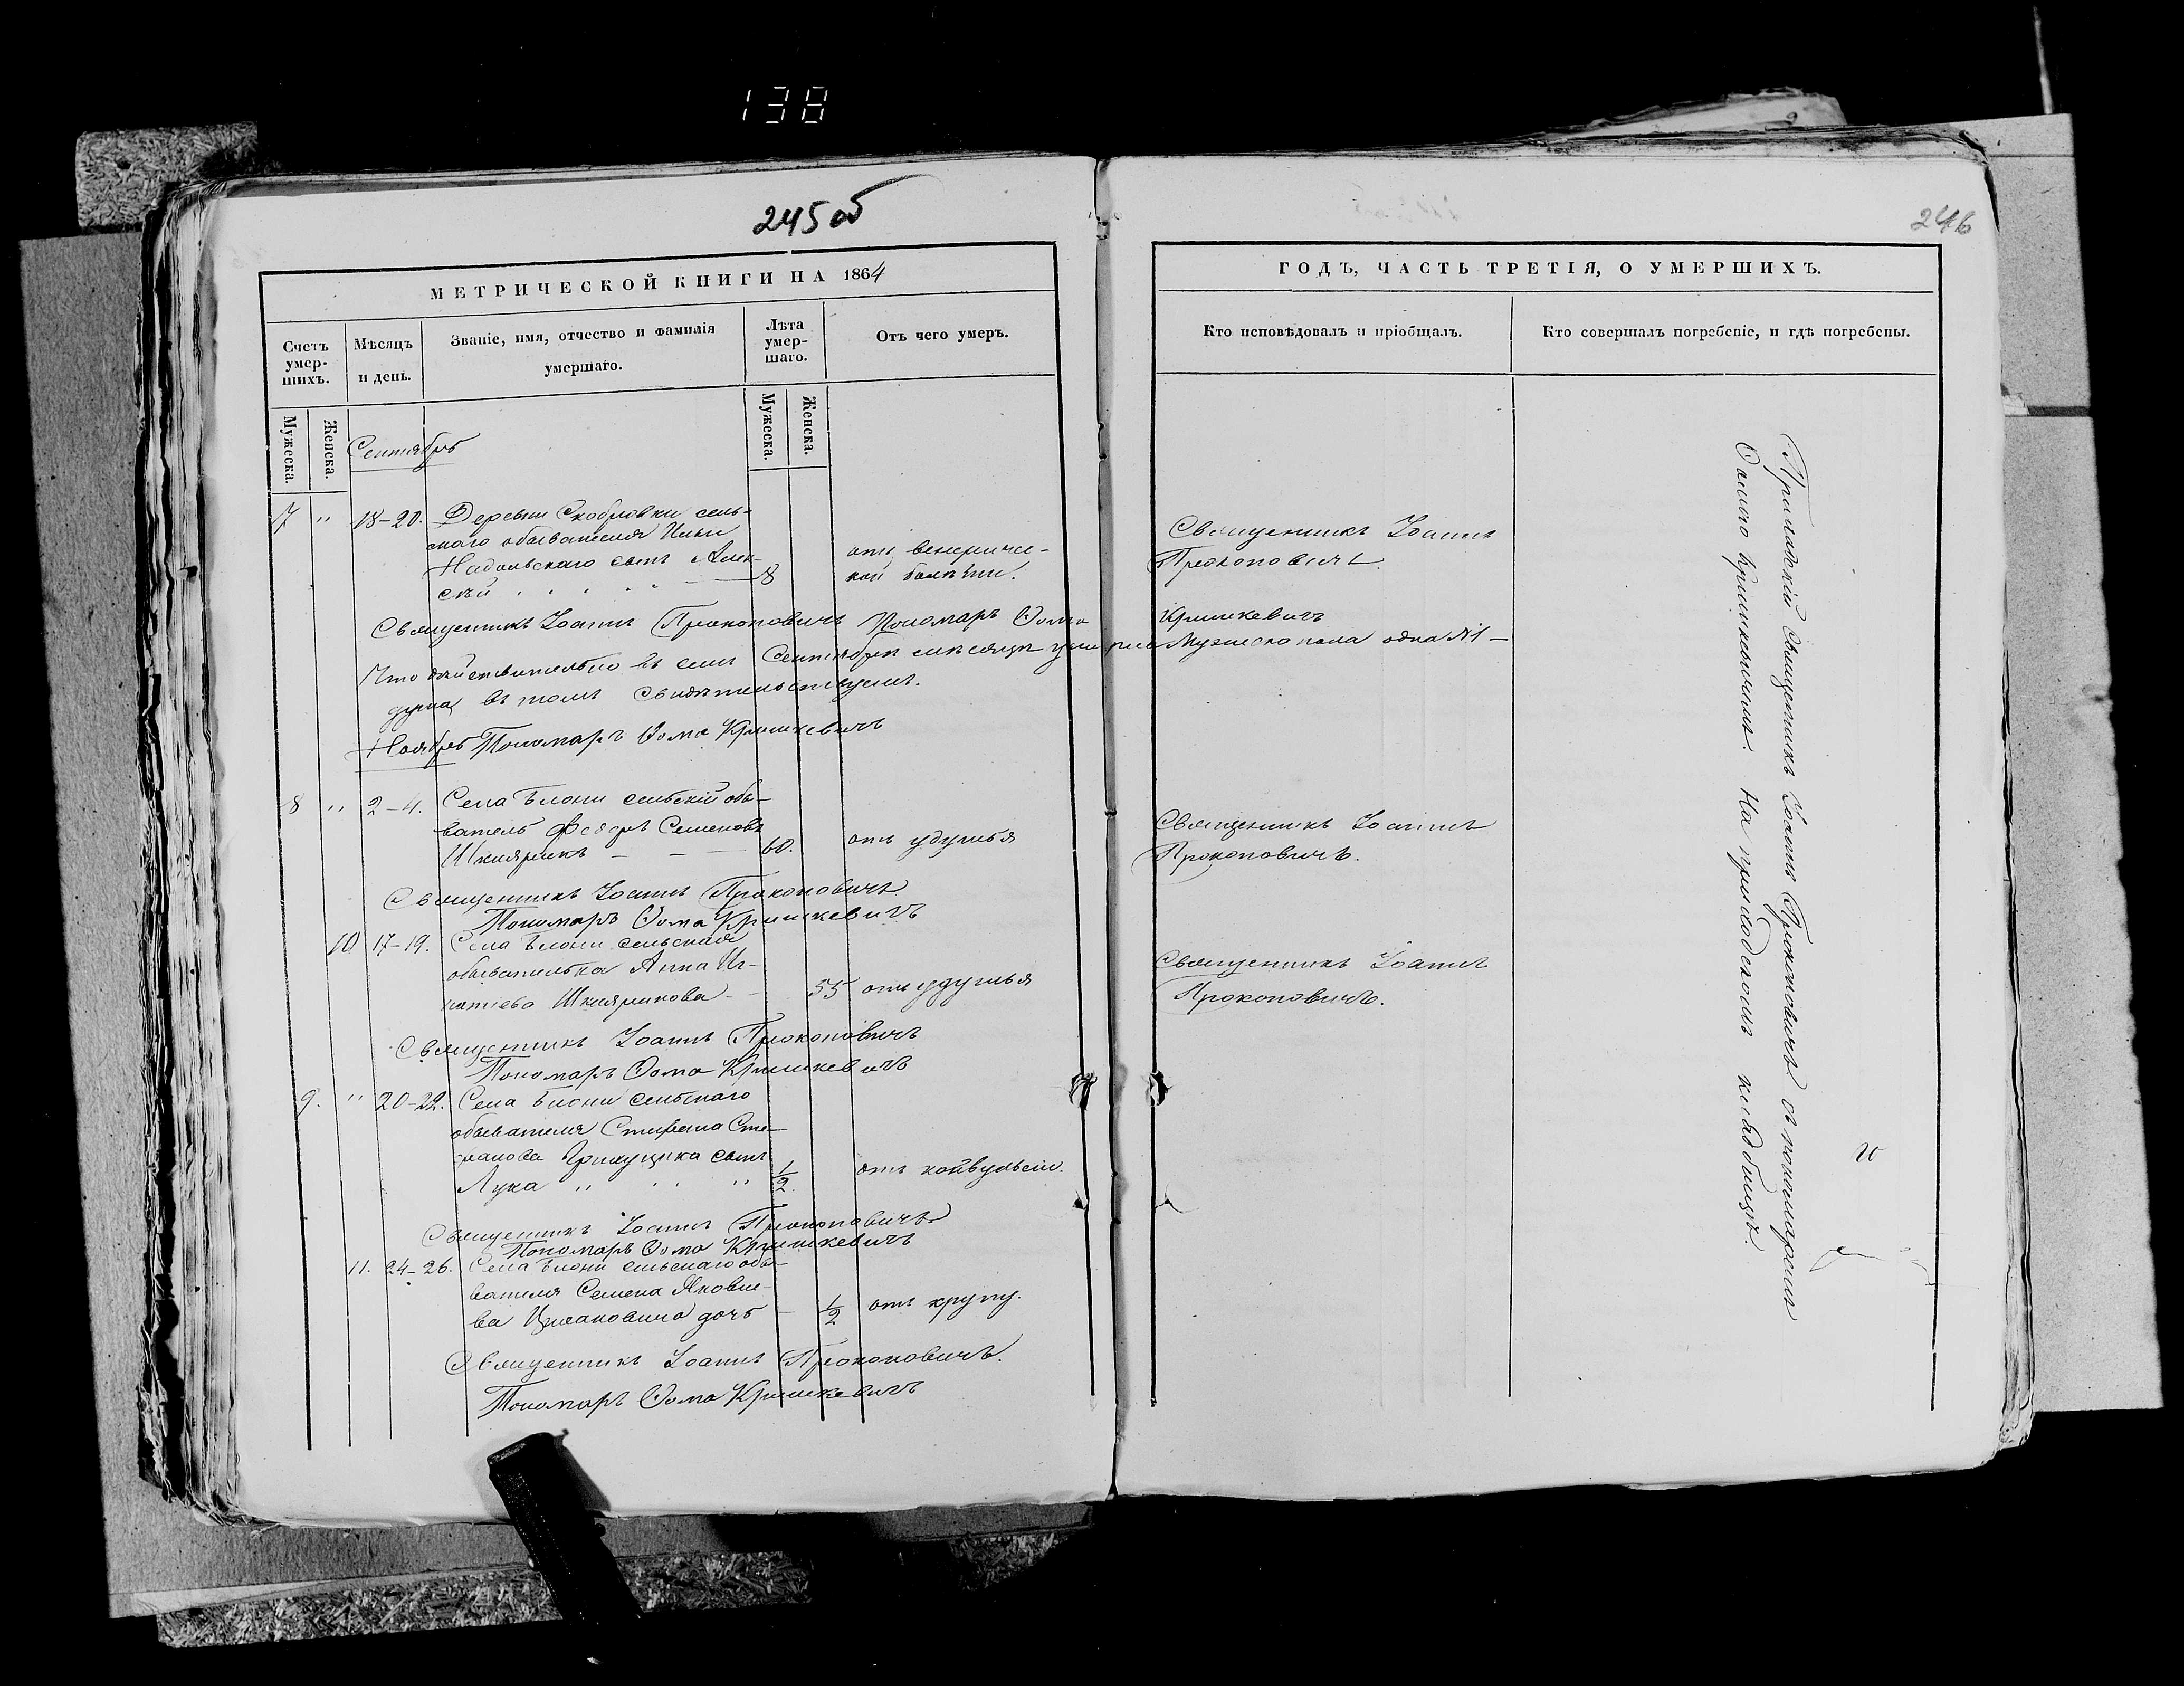 138
245 об
МЕТРИЧЕСКОЙ КНИГИ НА 1864
Счетъ умер-шихъ.
Мѣсяцъ и день.
Званіе, имя, отчество и фамилія умершаго.
Лѣта умер-шаго.
Отъ чего умеръ.
Мужеска.
Женска.
Мужеска.
Женска.
Сентябрь
7 " 18-20. Деревни Скобровки сель-
скаго обывателя
Надольскаго сынъ Алек-
сѣй 8
отъ венеричес-
кой болѣзни.
Священникъ Іоаннъ Прокоповичъ Пономарь Ѳома Кришкевичъ
Что дѣйствительно въ семъ Сентябрѣ мѣсяцѣ умерла Мужеско пола одна №1 –
душа, въ томъ свидѣтельствуемъ.
Ноябрь Пономарь Ѳома Кришкевичъ
8 " 2-4. Села Блони сельскій обы-
ватель Ѳедоръ Семеновъ
Шклярикъ – – – 60. отъ удушья
Священникъ Іоаннъ Прокоповичъ
Пономарь Ѳома Кришкевичъ
10 17-19. Села Блони сельская
обывателька Анна Иг-
натіева Шклярикова – 55 отъ удушья
Священникъ Іоаннъ Прокоповичъ
Пономарь Ѳома Кришкевичъ
9. " 20-22. Села Блони сельскаго
обывателя Стефана Сте-
фанова сынъ
Лука " " " 1/2. отъ конвульсіи.
Священникъ Іоаннъ Прокоповичъ
Пономарь Ѳома Кришкевичъ
11. 24-26. Села Блони сельскаго обы-
вателя Семена Яковле-
ва дочь – 1/2 отъ крупу.
Священникъ Іоаннъ Прокоповичъ.
Пономарь Ѳома Кришкевичъ
246
ГОДЪ, ЧАСТЬ ТРЕТІЯ, О УМЕРШИХЪ.
Кто исповѣдовалъ и пріобщалъ.
Кто совершалъ погребеніе, и гдѣ погребены.
Священникъ Іоаннъ
Прокоповичъ.
Священникъ Іоаннъ
Прокоповичъ.
Священникъ Іоаннъ
Прокоповичъ.
Приходскій Священникъ Іоаннъ Прокоповичъ съ пономаремъ
Ѳомою Кришкевичемъ. На приходскомъ кладбищѣ.